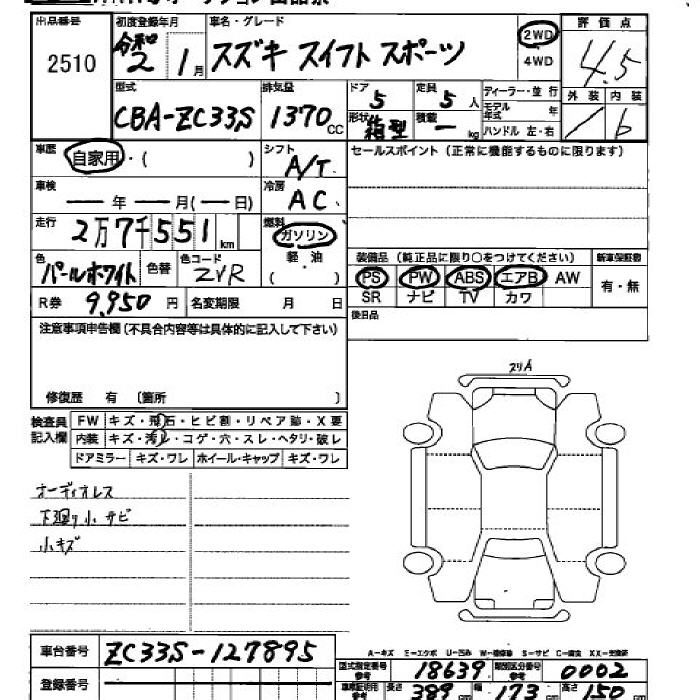 出品番号 2510
初度登録年月 令和2年1月
車名・グレード スズキ スイフト スポーツ
2WD 4WD
評価点 4.5
型式 CBA-ZC33S
排気量 1370 CC
ドア 5
定員 5 人
ディーラー・並行
形状 箱型
積載 ー kg
モデル年式 年
ハンドル 左・右
外装 /
内装 b
車歴 自家用・( )
シフト A/T
セールスポイント (正常に機能するものに限ります)
車検 ー年 ー月(ー日)
冷房 AC
走行 2万7千551 km
燃料 ガソリン
軽・油
( )
色 パールホワイト
色替
色コード ZVR
装備品 (純正品に限り○をつけてください)
新車保証書
PS PW ABS エアB AW
SR ナビ TV カワ
有・無
R券 9,950 円
名変期限 月 日
後日品
注意事項申告欄(不具合内容等は具体的に記入して下さい)
修復歴 有 〔箇所 〕
検査員記入欄
FW キズ・飛石・ヒビ割・リペア跡・X要
内装 キズ・汚レ・コゲ・穴・スレ・ヘタリ・破レ
ドアミラー キズ・ワレ ホイール・キャップ キズ・ワレ
オーディオレス
下廻り小サビ
小キズ
A-キズ E-エクボ U-凹み W-補修跡 S-サビ C-腐食 XX-交換済
車台番号 ZC33S-127895
型式指定番号 参考 18639
類別区分番号 参考 0002
登録番号
長さ 389 cm 幅 173 cm 高さ 150 cm